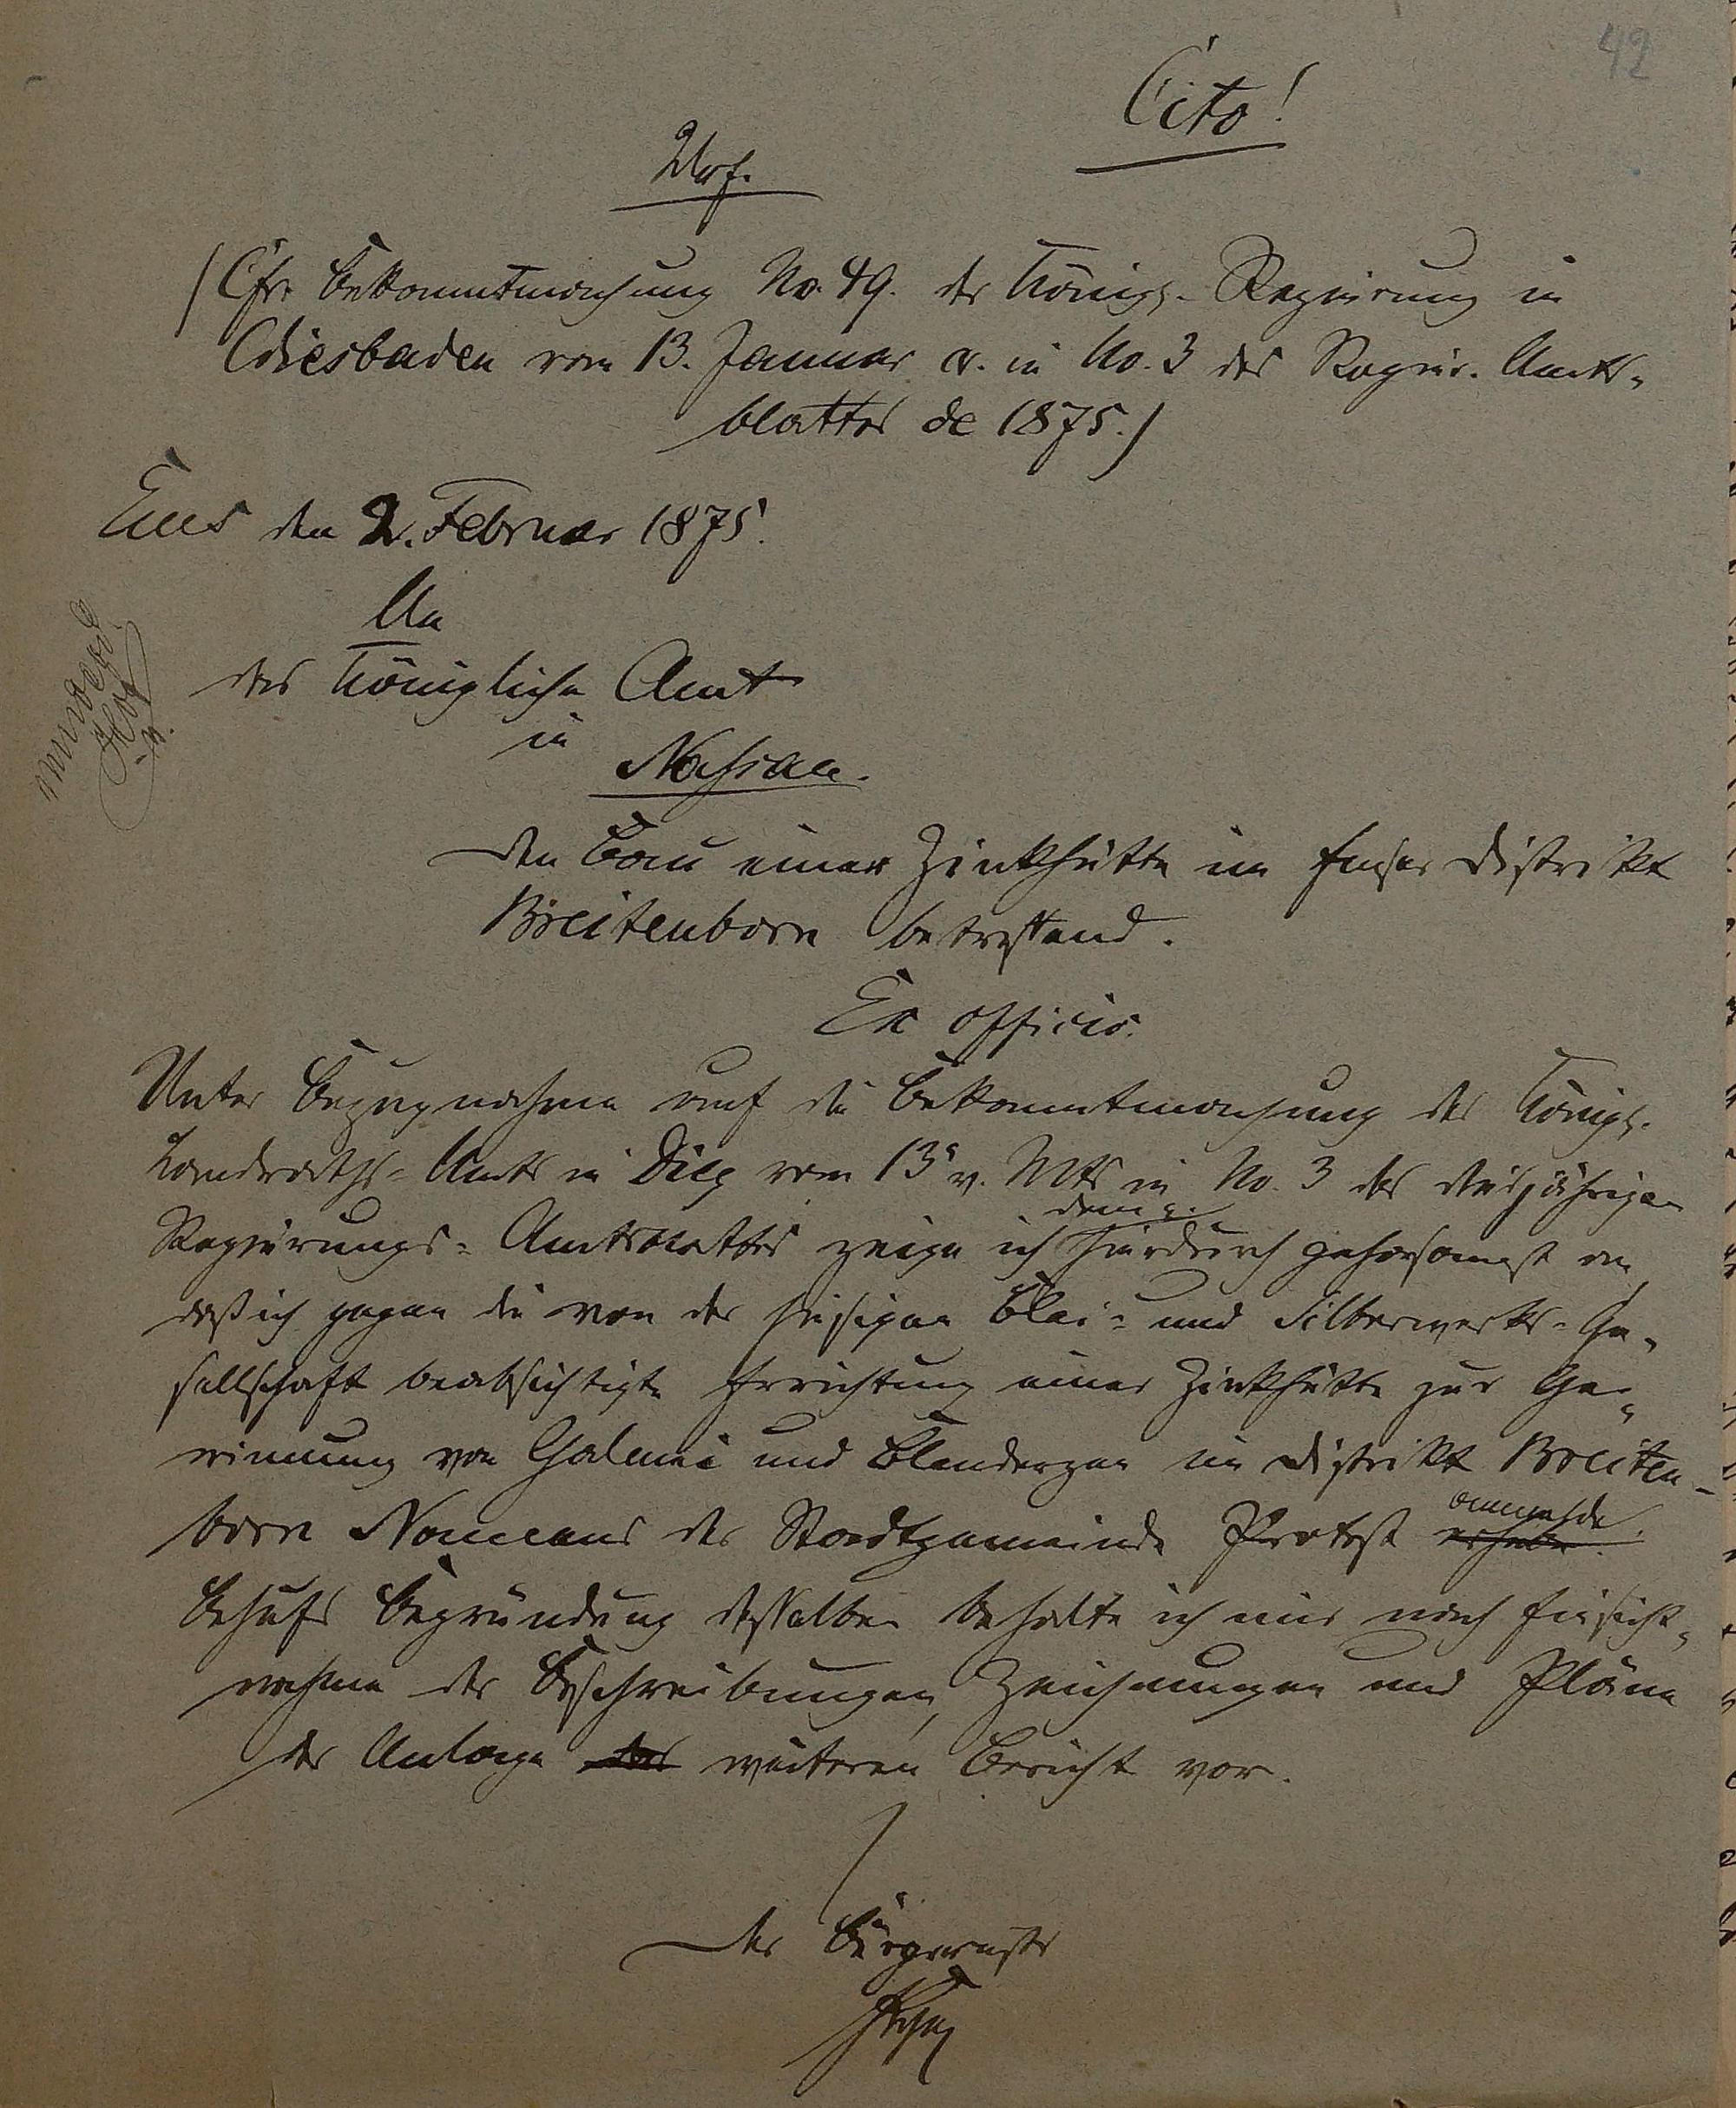 42
Cito!
Urs.
(Cfr. Bekanntmachung No. 49. der Königl. Regierung in
Wiesbaden vom 13. Januar cr. in No. 3 des Regier. Amts-
blattes de 1875.)
Ems den 2. Februar 1875.
An
das Königliche Amt
in
Nassau.
den Bau einer Zinkhütte im Emser Distrikt
Breitenborn betreffend.
Ex officio.
Unter Bezugnahme auf die Bekanntmachung des Königl.
Landraths-Amts in Diez vom 13 v. Mts in No. 3 des diesjährigen
Regierungs-Amtsblattes zeige ich hierdurch gehorsamst an
daß ich gegen die von der hiesigen Blei- und Silberwerks-Ge-
sellschaft beabsichtigte Errichtung einer Zinkhütte zur Ge-
winnung von Galmei und Blenderzen im Distrikt Breiten-
born Namens der Stadtgemeinde Protest erhebe anmelde.
Behufs Begründung desselben behalte ich mir nach Einsicht-
nahme der Beschreibungen, Zeichnungen und Pläne
der Anlage weiteren Bericht vor.
der Bürgermstr